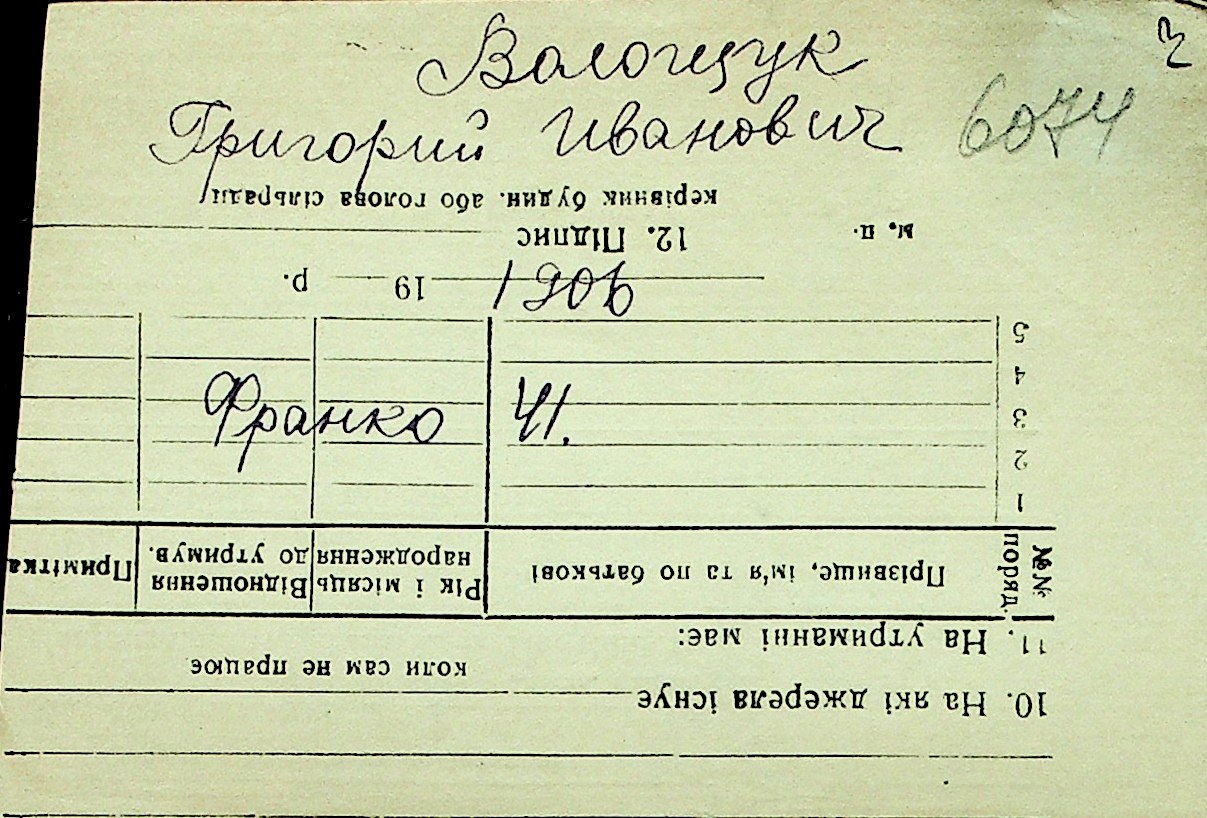 Волощук
Григорий Иванович 6074
1906
Франко 41.
10. На які джерела існує
коли сам не працює
11. На утриманні має:
№№ поряд.
Прізвище, ім'я та по батькові
Рік і місяць народження
Відношення до утримув.
Примітка
1
2
3
4
5
19 р.
м. п. 12. Підпис
керівник будин. або голова сільради